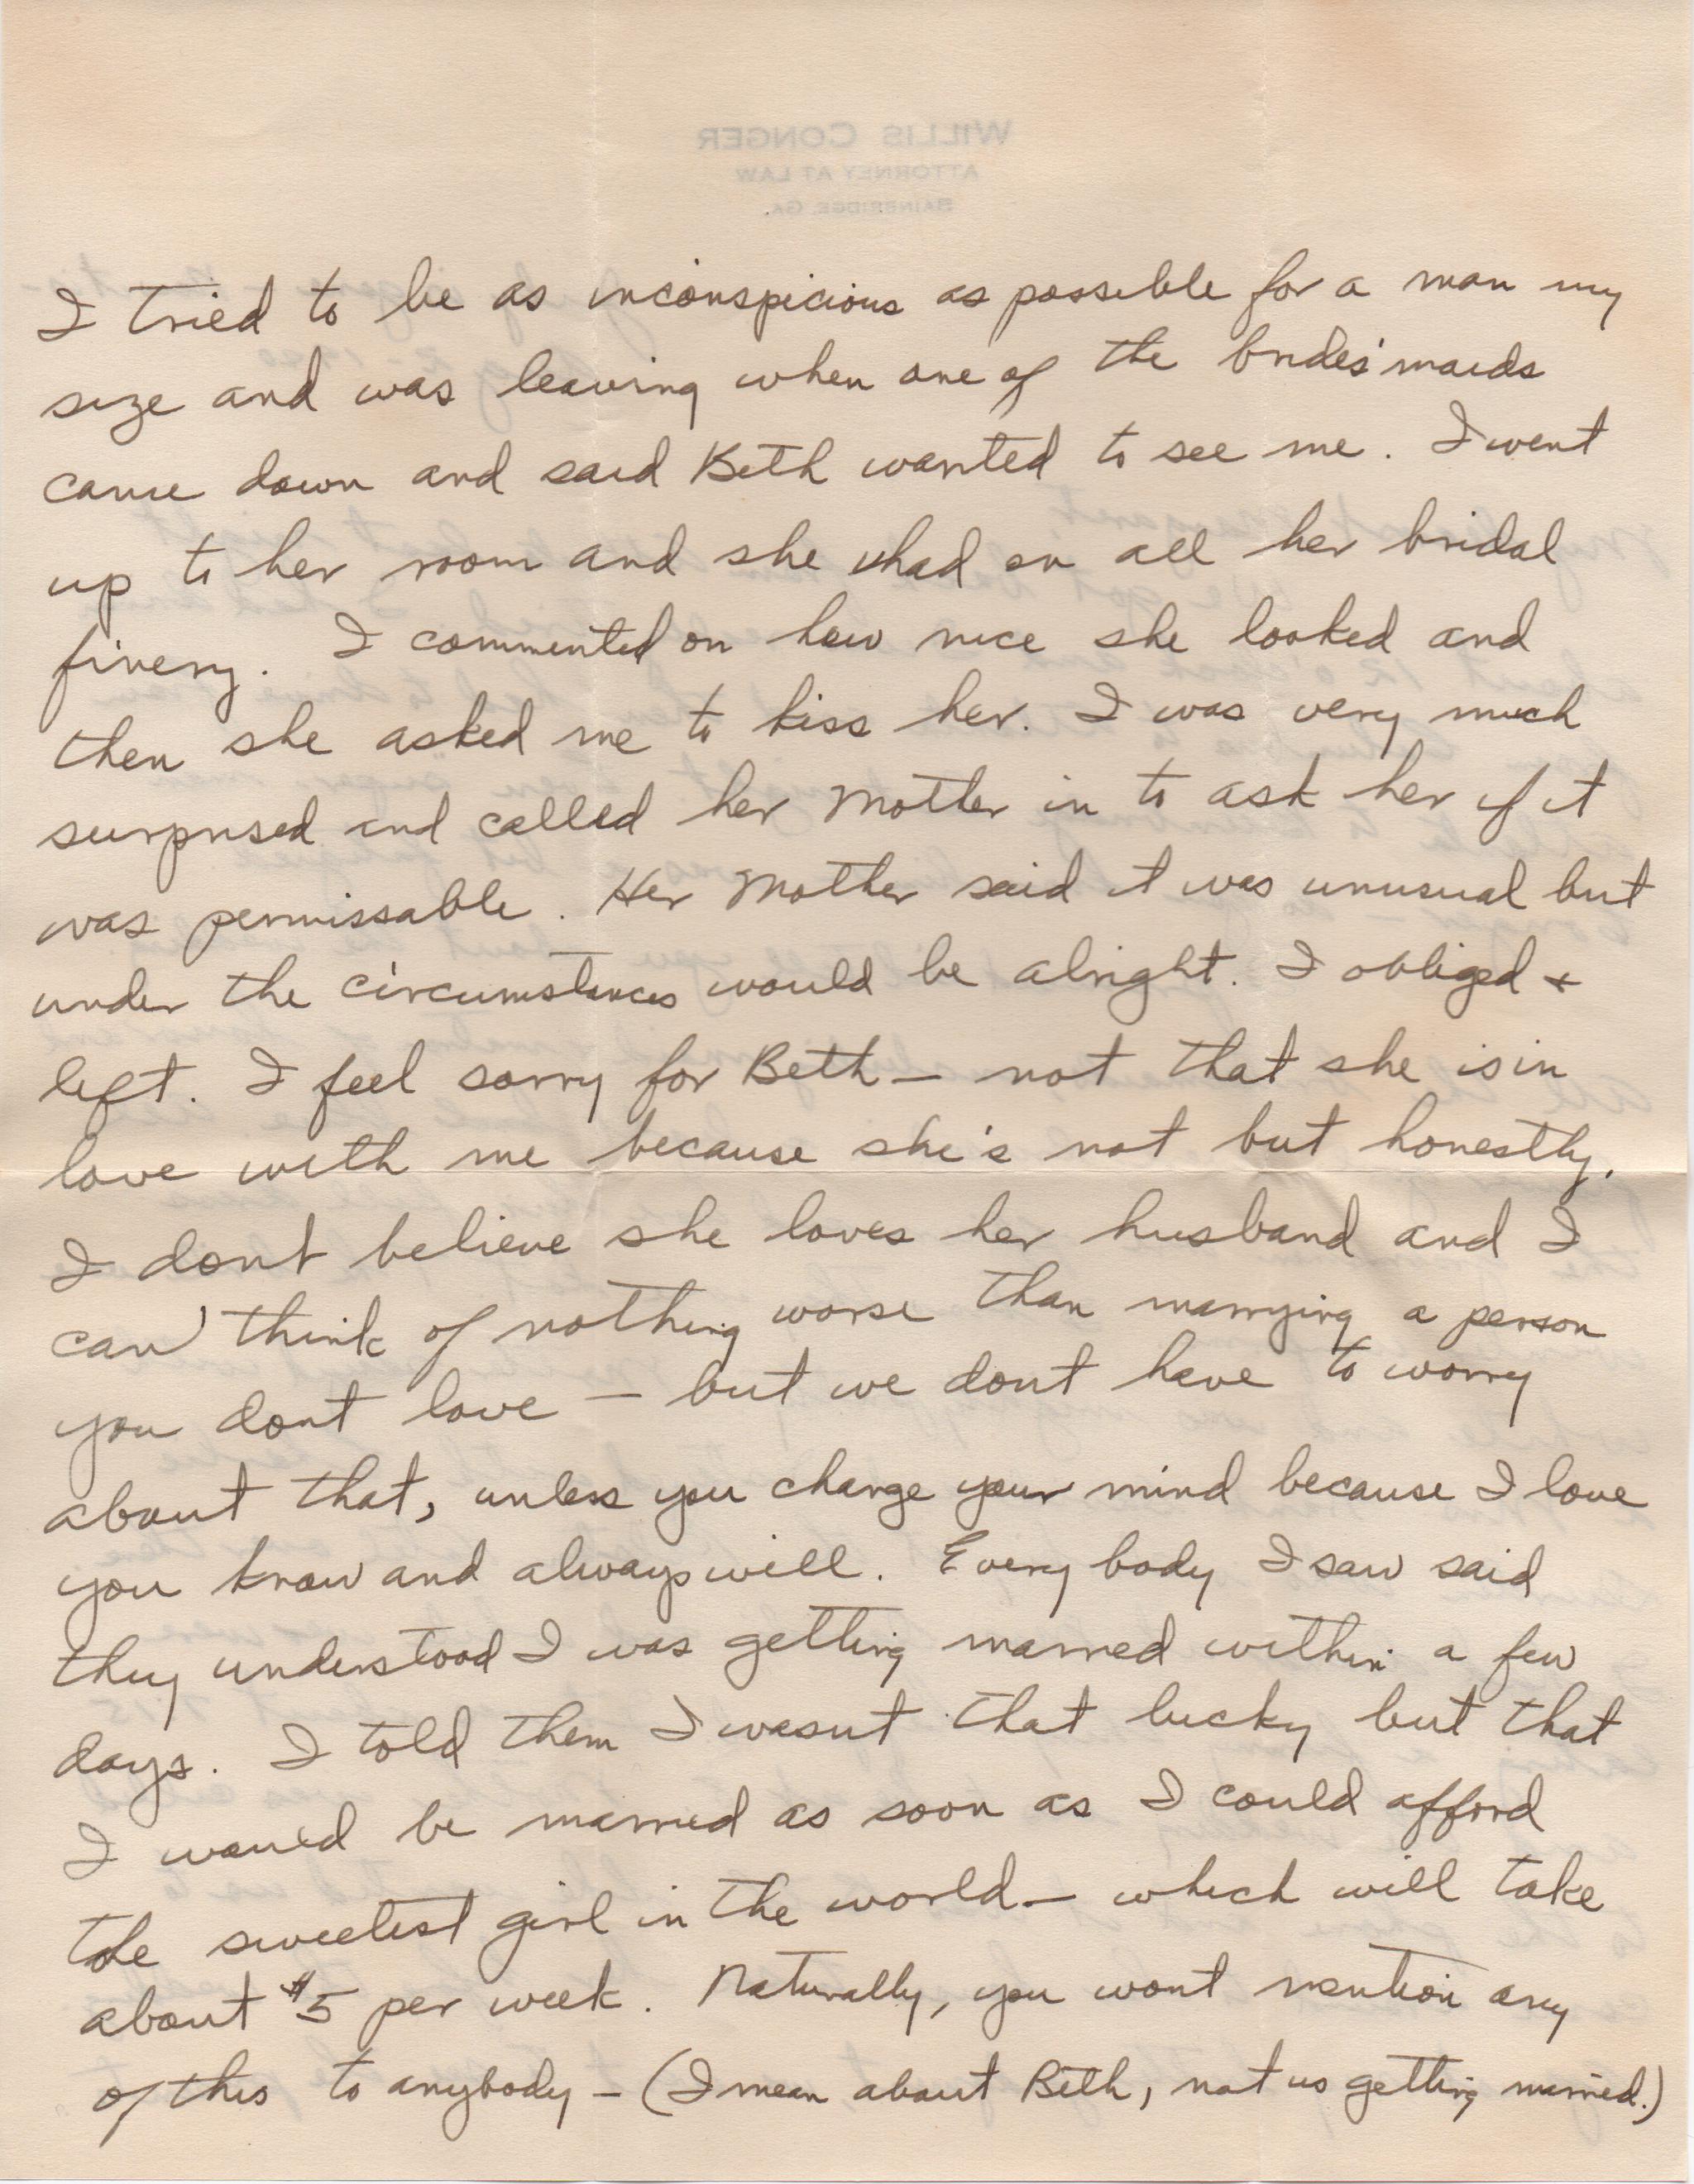 WILLIS CONGER
ATTORNEY AT LAW
BAINBRIDGE, GA.
I tried to be as inconspicious as possible for a man my
size and was leaving when one of the brides'maids
came down and said Beth wanted to see me. I went
up to her room and she had on all her bridal
finery. I commented on how nice she looked and
then she asked me to kiss her. I was very much
surprised and called her Mother in to ask her if it
was permissable. Her Mother said it was unusual but
under the circumstances would be alright. I obliged +
left. I feel sorry for Beth — not that she is in
love with me because she's not but honestly,
I dont believe she loves her husband and I
can think of nothing worse than marrying a person
you dont love — but we dont have to worry
about that, unless you change your mind because I love
you know and always will. Every body I saw said
they understood I was getting married within a few
days. I told them I wasnt that lucky but that
I would be married as soon as I could afford
the sweetest girl in the world — which will take
about $5 per week. Naturally, you wont mention any
of this to anybody — (I mean about Beth, not us getting married.)